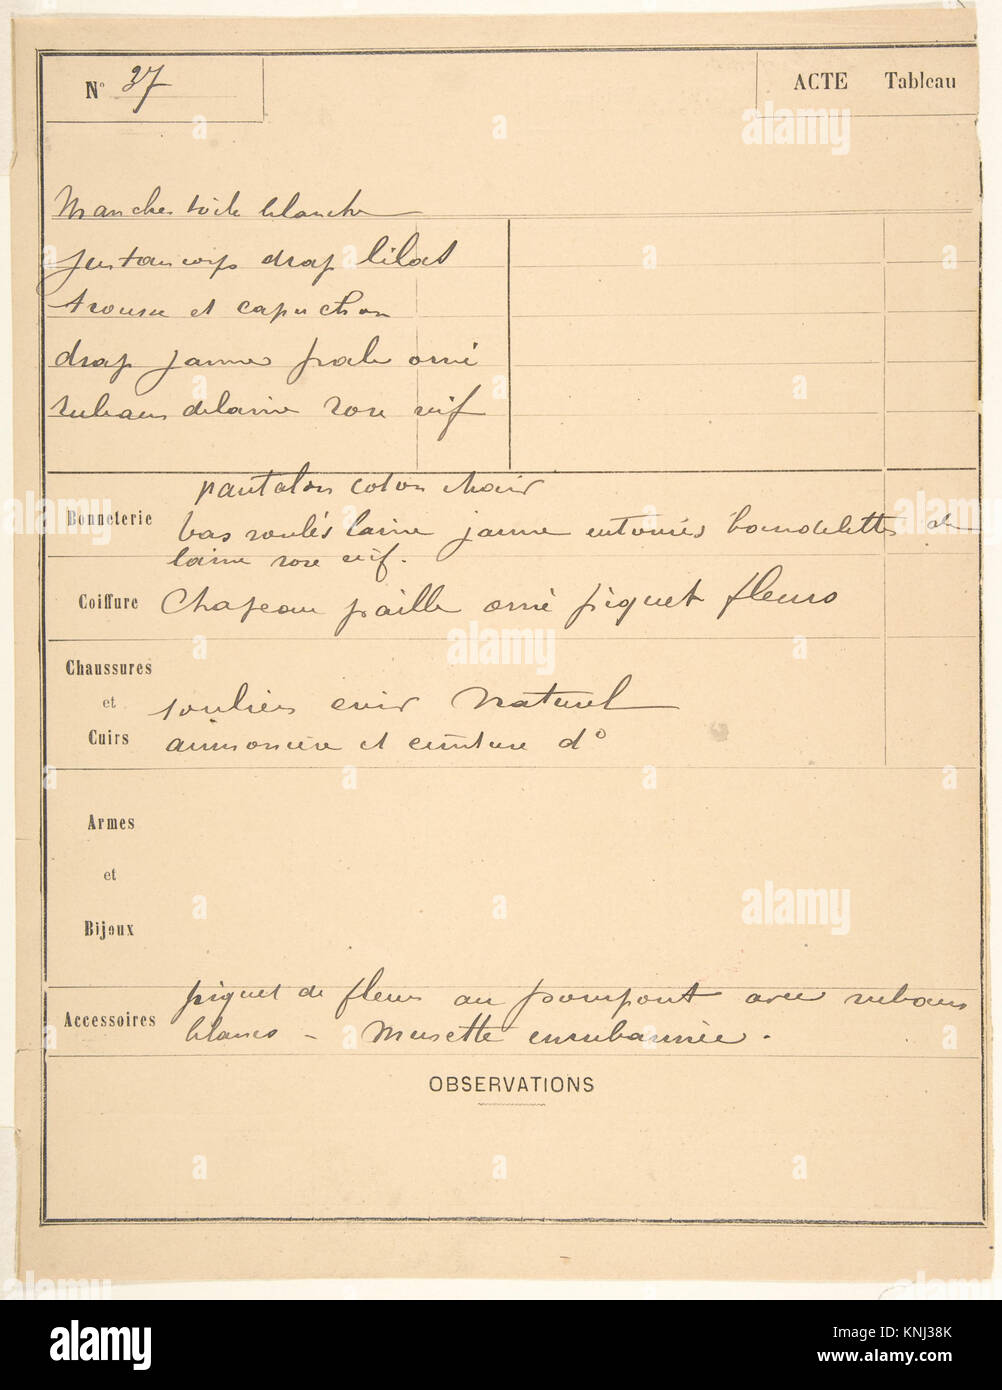 N° 37
ACTE Tableau
Manches toile blanche
Justaucorps drap lilas
trousse et capuchon
drap jaune pale orné
rubans de laine rose vif
pantalon coton chair
Bonneterie
bas roulés laine jaune entourés bandelettes de
laine rose vif.
Coiffure
Chapeau paille orné piquet fleurs
Chaussures
et
Cuirs
souliers cuir naturel
aumonière et ceinture d°
Armes
et
Bijoux
piquet de fleurs au pourpoint avec rubans
Accessoires
blancs - Musette enrubannée.
OBSERVATIONS
alamy
Image ID: KNJ38K
www.alamy.com